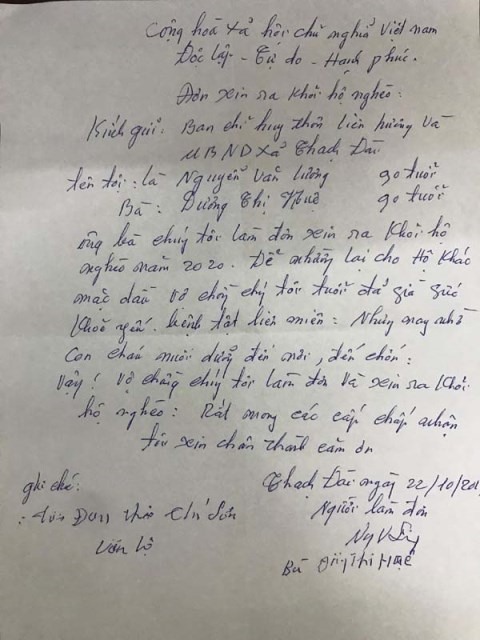 Cộng hoà xã hội chủ nghĩa Việt nam
Độc lập - Tự do - Hạnh phúc.
Đơn xin ra khỏi hộ nghèo:
Kính gửi: Ban chỉ huy thôn liên hương và
UBND xã Thạch Đài
tên tôi: là Nguyễn Văn Lương 90 tuổi
Bà: Dương Thị Huệ 90 tuổi
ông bà chúng tôi làm đơn xin ra khỏi hộ
nghèo năm 2020. Để nhường lại cho Hộ khác
mặc dầu vợ chồng chúng tôi tuổi đã già sức
khoẻ yếu. bệnh tật liên miên: Nhưng nay nhờ
con cháu nuôi dưỡng đến nơi, đến chốn:
Vậy! vợ chồng chúng tôi làm đơn và xin ra khỏi
hộ nghèo: Rất mong các cấp chấp nhận
tôi xin chân thành cảm ơn
Thạch Đài ngày 22/10/20
ghi chú: Người làm đơn
Đơn
Bà Huệ